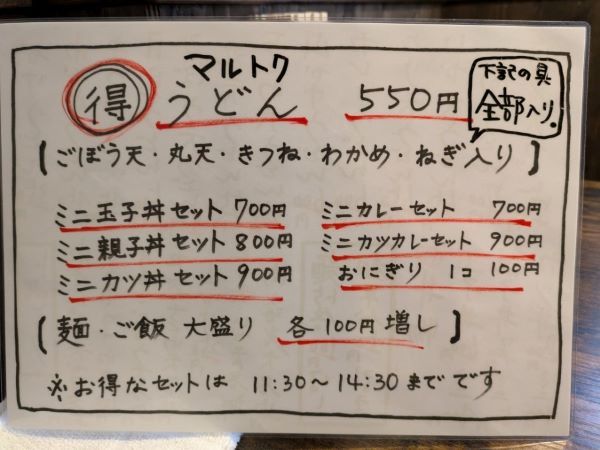 マルトク
得 うどん 550円
下記の具
全部入り。
【ごぼう天・丸天・きつね・わかめ・ねぎ入り】
ミニ玉子丼セット 700円
ミニ親子丼セット 800円
ミニカツ丼セット 900円
ミニカレーセット 700円
ミニカツカレーセット 900円
おにぎり 1コ 100円
【麺・ご飯 大盛り 各100円増し】
※お得なセットは 11:30〜14:30までです